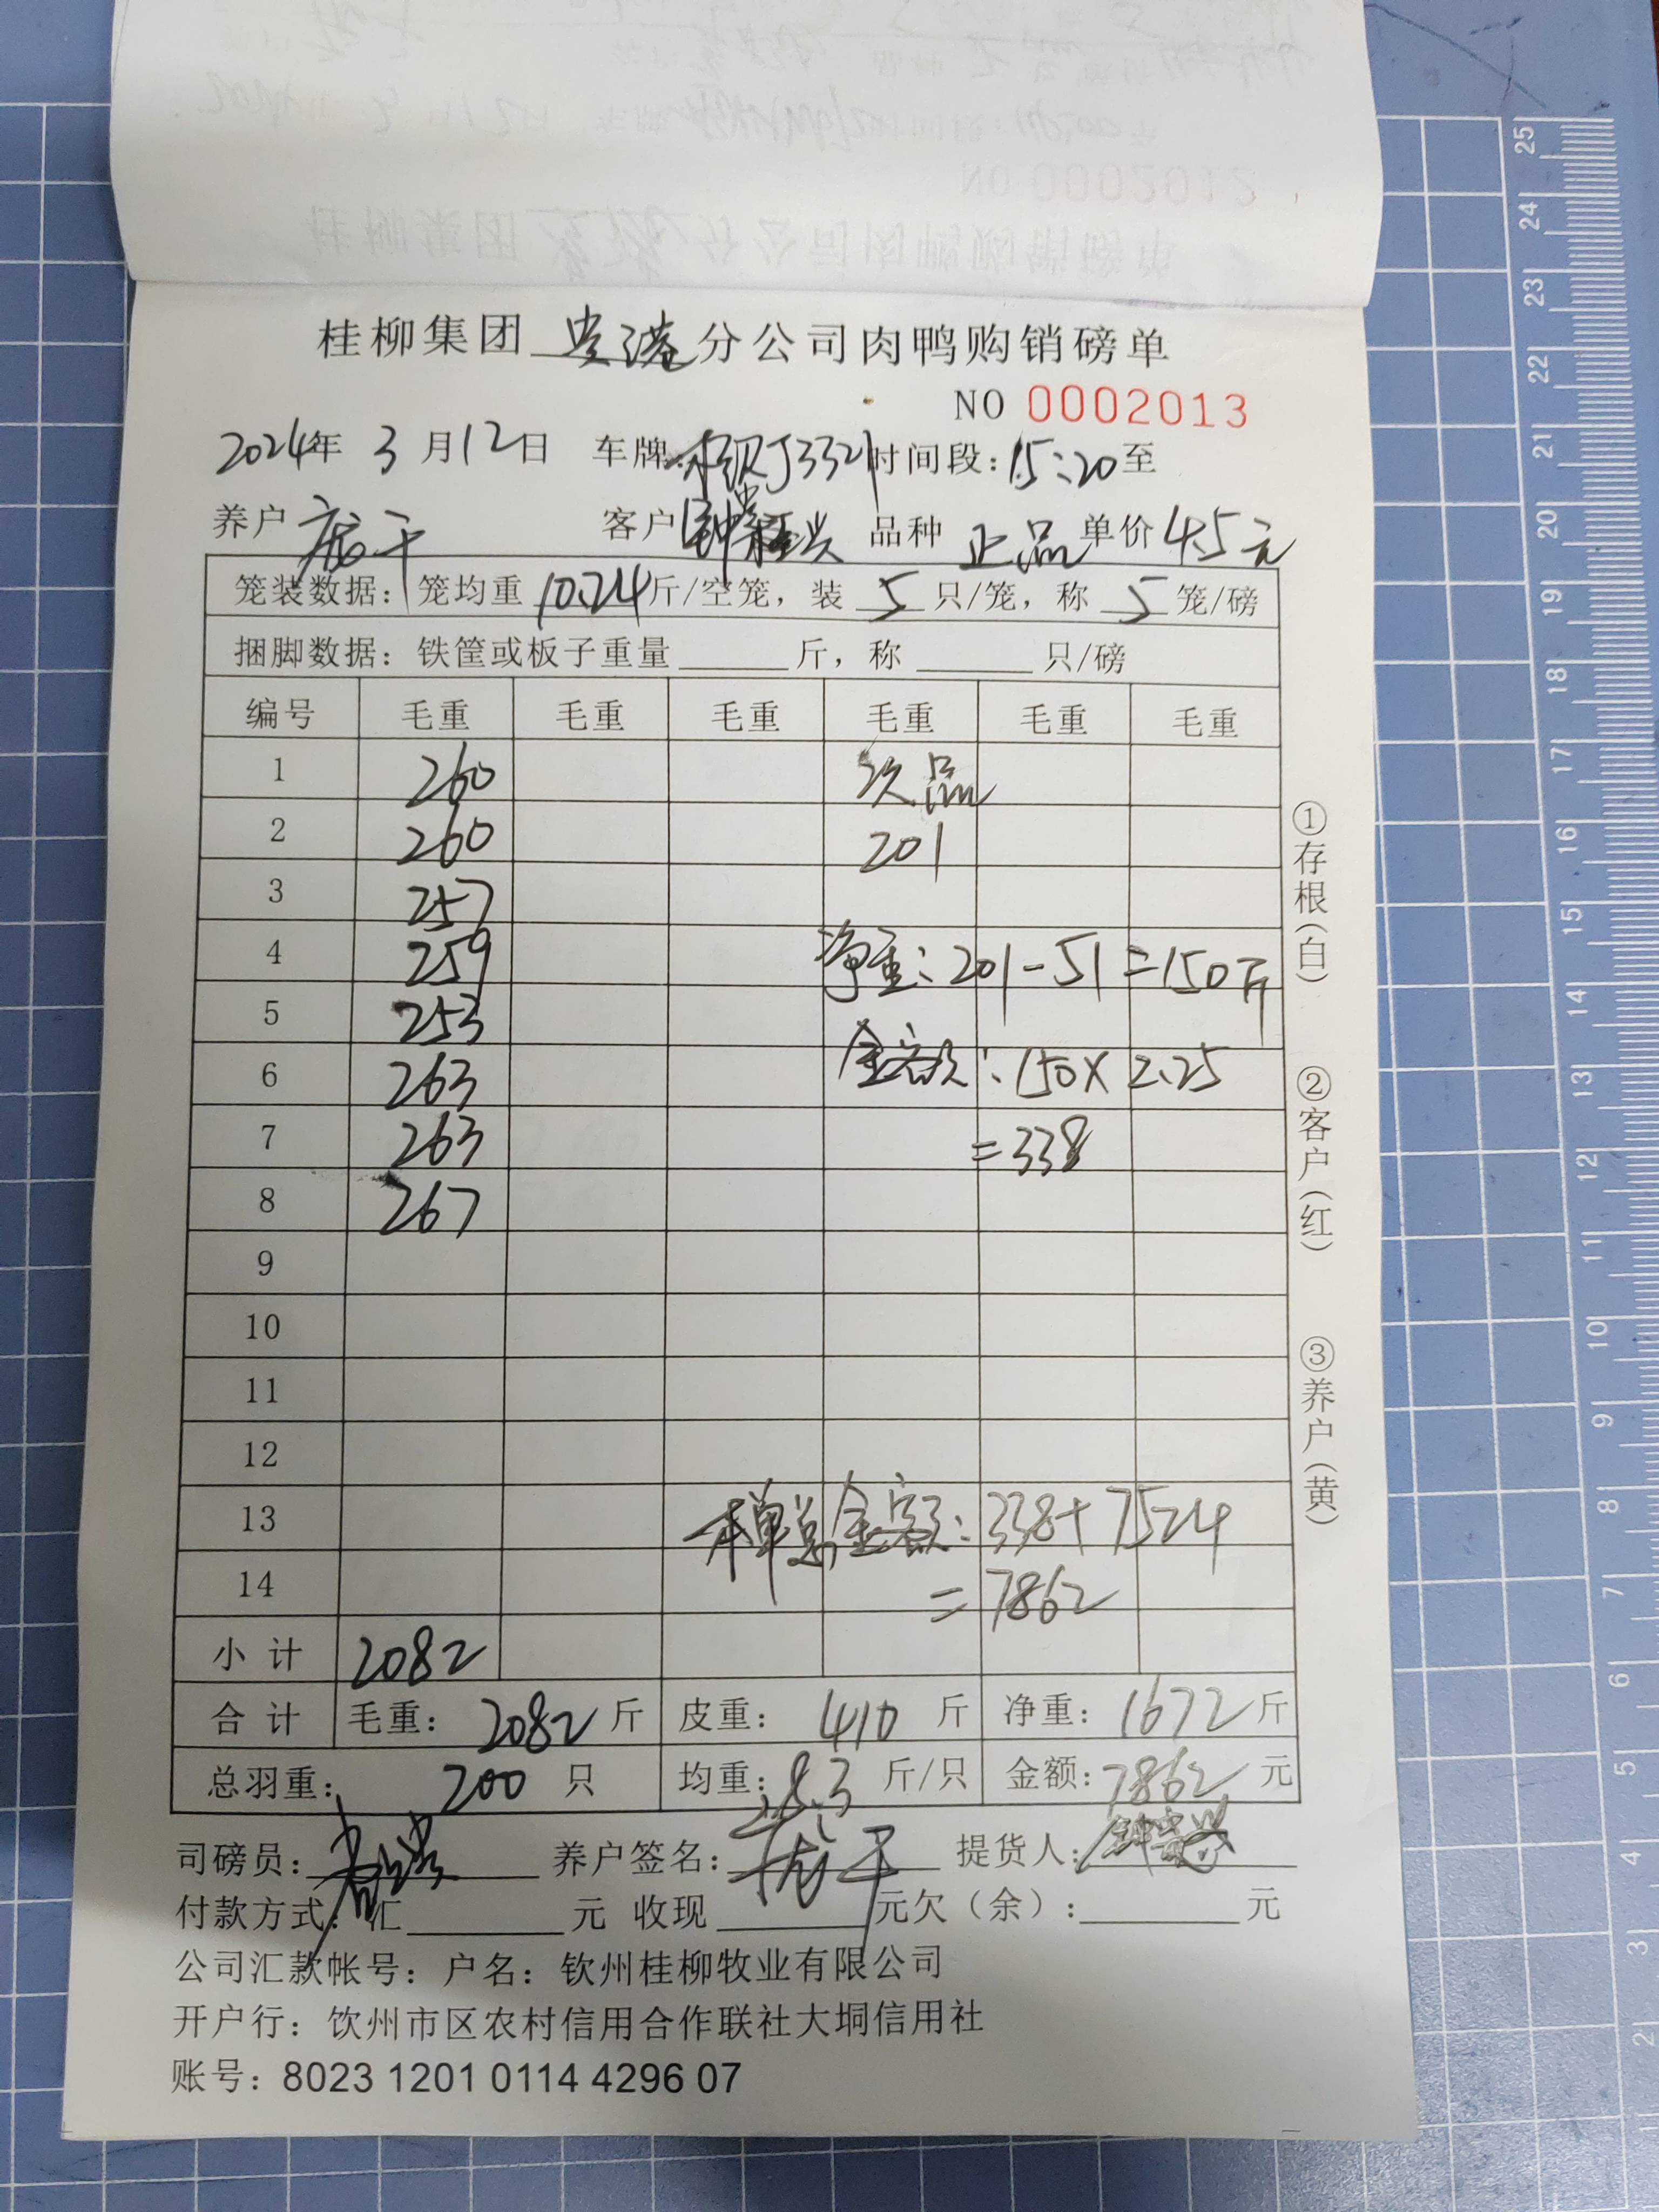 桂柳集团贵港分公司肉鸭购销磅单
NO 0002013
2024年 3月12日 车牌: J3321 时间段: 15:20至
养户 庞干 客户 钟 兴 品种 正品 单价 4.5元
笼装数据: 笼均重 10.24斤/空笼, 装 5 只/笼, 称 5 笼/磅
捆脚数据: 铁筐或板子重量 斤, 称 只/磅
编号 毛重 毛重 毛重 毛重 毛重 毛重
1 260 次品
2 260 201
3 257
4 259 净重: 201-51=150斤
5 253
6 263 金额: 150×2.25
7 263 =338
8 267
9
10
11
12
13 本单总金额: 338+7524
14 =7862
小计 2082
合计 毛重: 2082斤 皮重: 410斤 净重: 1672斤
总羽重: 200只 均重: 8.3斤/只 金额: 7862元
司磅员: 养户签名: 庞干 提货人: 钟 兴
付款方式: 汇 元 收现 元欠(余): 元
公司汇款帐号: 户名: 钦州桂柳牧业有限公司
开户行: 饮州市区农村信用合作联社大垌信用社
账号: 8023 1201 0114 4296 07
①存根(白)
②客户(红)
③养户(黄)
25
24
23
22
21
20
19
18
17
16
15
14
13
12
11
10
9
8
7
6
5
4
3
2